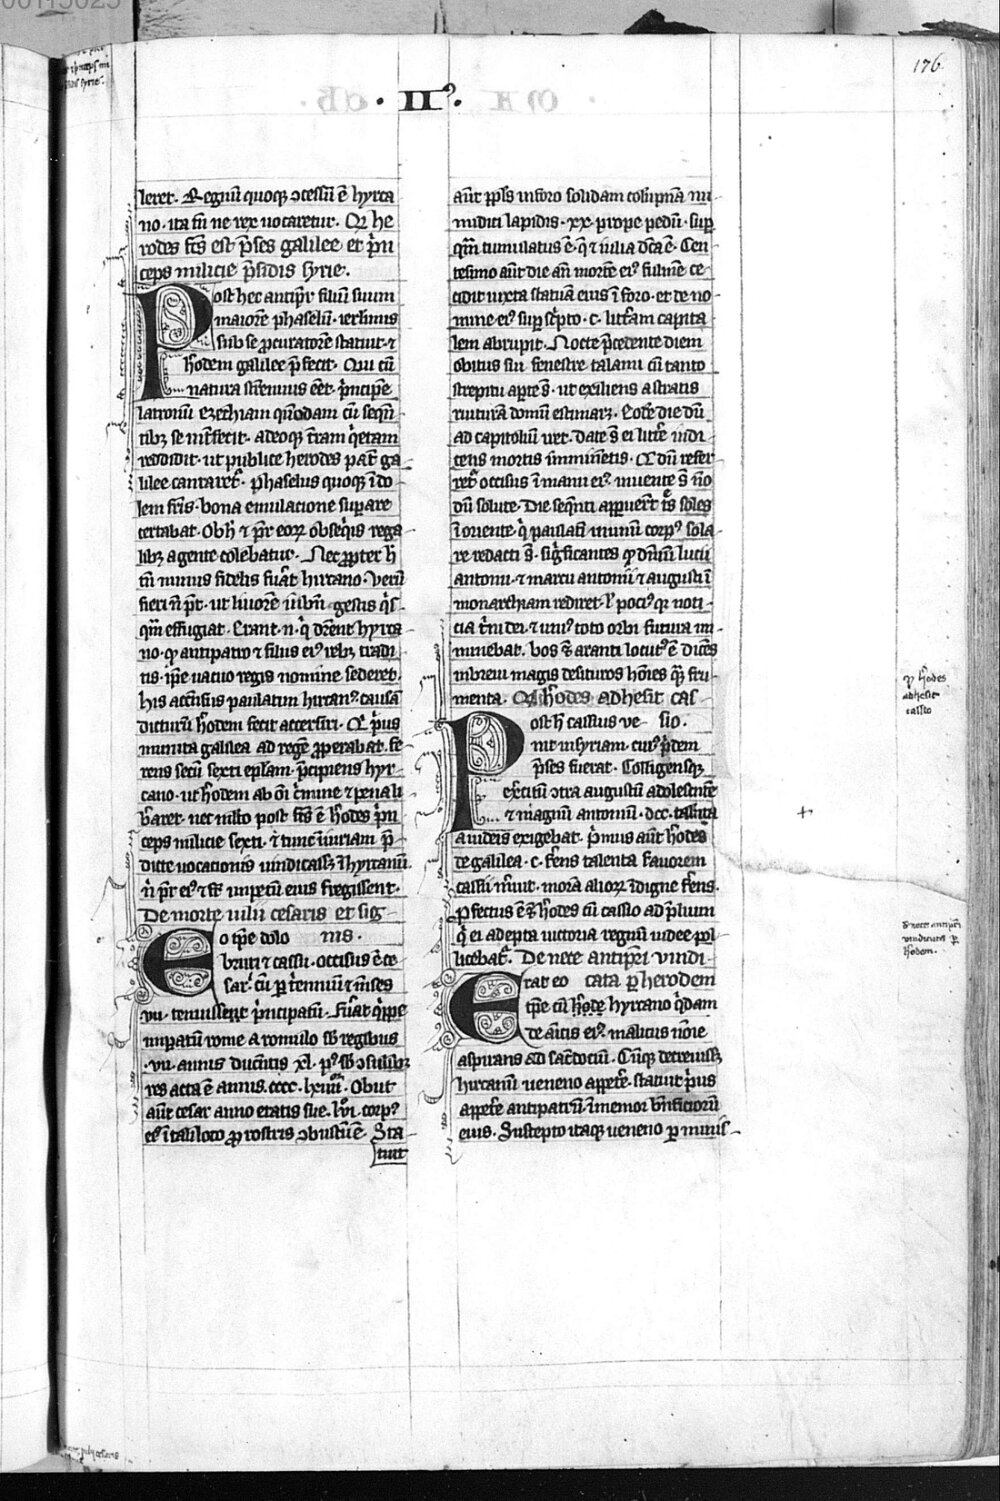 176
· II⁹.
leret. Regnū quoq; ꝯcessū ē hyrca
no. ita tn̄ ne rex uocaretur. Q̄ he
rodes fc̄s est p̄ses galilee et p̄n
ceps milicie p̄sidis syrie.
Post hec antipr̄ filiū suum
maiorē phaselū. ierl̄imis
sub se ꝓcuratorē statuit. ⁊
h̓odem galilee p̄fecit. Qui cū
natura strenuus eēt. p̓ncipē
latronū ezechiam quēdam cū seqn̄
tib; se int̓fecit. adeoq; t̓ram q̓etam
reddidit. ut publice herodes pat̓ ga
lilee cantaret᷑. phaselus quoq; ī do
lem fr̄is. bona emulacione suꝑare
certabat. Ob h̄ ⁊ pr̄ eoꝝ obseq̓is rega
lib; a gente colebatur. Nec ꝓpter h̄
tn̄ minus fidelis fuit hircano. Verū
fieri n̄ pt̄. ut liuorē
qm̄ effugiat. Erant .n. q̓ dr̄ent hyrca
no. ꝙ antipatro ⁊ filiis ei⁹ reb; tradi
tis. ip̄e uacuo regis nomine sederet.
his accensus paulatim hircan⁹ causā
dicturū h̓odem fecit accersiri. Q̄ p̓us
munita galilea ad regē ꝓperabat. fe
rens secū sexti ep̄lam. p̄cipiens hyr
cano. ut h̓odem ab oī c̓mine ⁊ penali
lib̓aret. nec ml̓to post fc̄s ē h̓odes p̓n
ceps milicie sexti. ⁊ tunc īiuriam p̄
dicte uocationis uindicass; ī hyrcanū.
n̄ pr̄ ei⁹ ⁊ fr̄ impetū eius fregissent.
De morte iulii cesaris et sig
nis.
Eo tp̄e dolo
bruti ⁊ cassii. occisus ē ce
sar. cū ꝑ t̓ennium ⁊ m̄ses
.vii. tenuisset p̓ncipatū. Fu̓at q̓ppe
imꝑatū rome a romulo sb̄ regibus
.vii. annis ducentis xl. p⁹ sb̄ ꝯsulib;
res acta ē annis. cccc. lxiiii. Obiit
aūt cesar anno etatis sue. lvi. corp⁹
ei⁹ ī tali loco ꝓ rostris ꝯbustū ē. Sta
tuit
aūt ppl̄s in foro solidam colūpnā nu
midici lapidis. xx. prope pedū. suꝑ
qm̄ tumulatus ē. q̄ ⁊ iulia dc̄a ē. Cen
tesimo aūt die an̄ mortē ei⁹ fulmē ce
cidit iuxta statuā eius ī foro. et de no
mine ei⁹ suꝑsc̓pto .c. litt̓am capita
lem abrupit. Nocte p̄cedente diem
obitus sui fenestre talami cū tanto
strepitu apte s̄. ut exiliens a stratis
ruiturā domū estimar;. Eodē die dū
ad capitoliū iret. date s̄ ei litt̓e indi
cens mortis imminētis. Q̄ dū refer
ret᷑ occisus ī manu ei⁹ inuente s̄ nō
dū solute. Die seqn̄ti appuerūt t̓s soles
ī oriente. q̓ paulati ī unum corp⁹ sola
re redacti s̄. sig̓ficantes ꝙ dn̄ium lucii
antonii. ⁊ marci antonii ⁊ augusti ī
monarchiam rediret. l̓ poci⁹ q; noti
cia t̓ni dei. ⁊ uni⁹ toto orbi futura im
minebat. bos ⁊ aranti locut⁹ ē. dicēs
in breui magis desituros hōies q̄ȝ fru
menta. Q̄ h̓odes adhesit cas
sio.
Post h̄ cassius ve
nit in syriam. cui⁹ p̓dem
p̄ses fuerat. Colligensq;
exercitū ꝯtra augustū adolescentē
⁊ magnū antoniū. dcc. talenta
a iudeis exigebat. p̓mus aūt h̓odes
de galilea .c. fer̄ns talenta fauorem
cassii m̓uit. morā alioꝝ īdigne fer̄ns.
ꝓfectus ē ⁊ h̓odes cū cassio ad p̄lium
q̓ ei adepta uictoria regnū iudee pol
licebat᷑. De nece antipr̄i uindi
cata ꝑ herodem
Erat eo
tp̄e cū h̓ode hyrcano q̓dam
de amicis ei⁹ malicus nōie
aspirans ad sac̓docium. Cūq; decreuiss;
hircanū ueneno appet̓e. statuit p̓us
appet̓e antipatrū īmemor bn̄ficioꝝ
eius. Suscepto itaq; ueneno ꝑ minis
ꝙ h̓odes
adhesit
cassio
De nece antipr̄i
uindicata ꝑ
h̓odem.